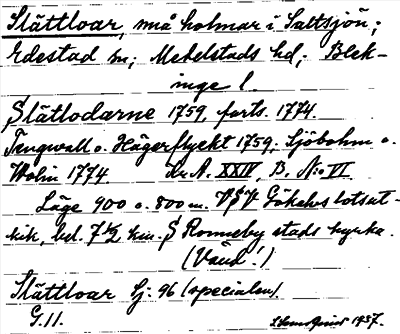 Slättloar, små holmar i Saltsjön;
Edestad sn; Medelstads hd; Blek-
inge l.
Slätlodarne 1759, forts. 1774.
Tengwall o. Hägerflyckt 1759; Sjöbohm o.
Wolin 1774. A. XXIV, B. No VI
Läge 900 o. 800 m. VSV Gökalvs lotsut-
kik, bel. 7½ km. S Ronneby stads kyrka.
(Vänd!)
Slättloar Sj: 96 (specialen).
G. 11. 1937.